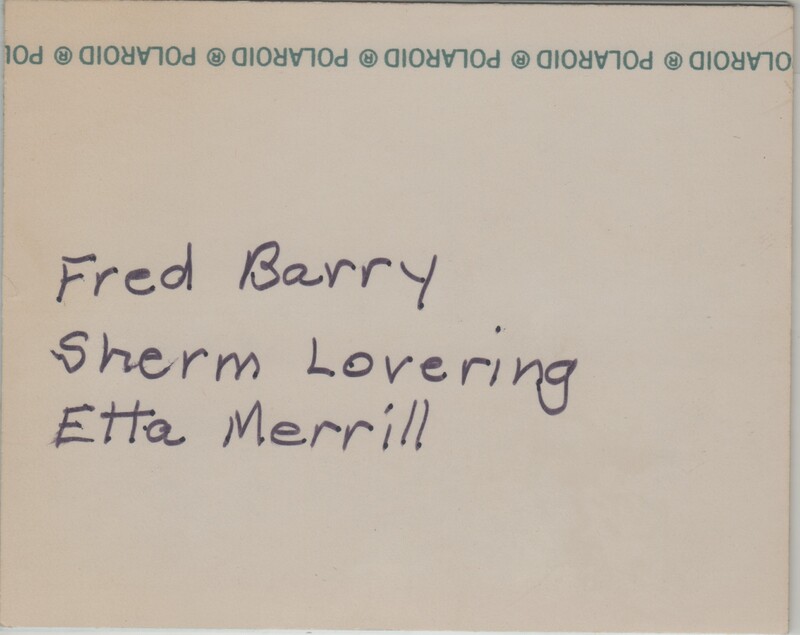 POL ® POLAROID ® POLAROID ® POLAROID ® POLAROID ® POLAROID
Fred Barry
Sherm Lovering
Etta Merrill